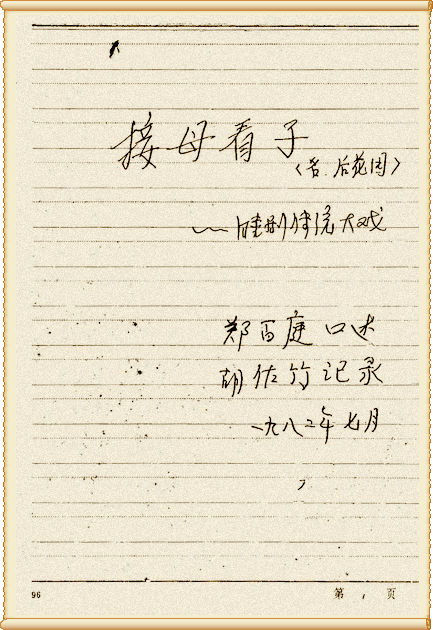 接母看子
〈名.后花园〉
——睦剧传统大戏
郑百庭口述
胡佐竹记录
一九八二年七月
96 第 页